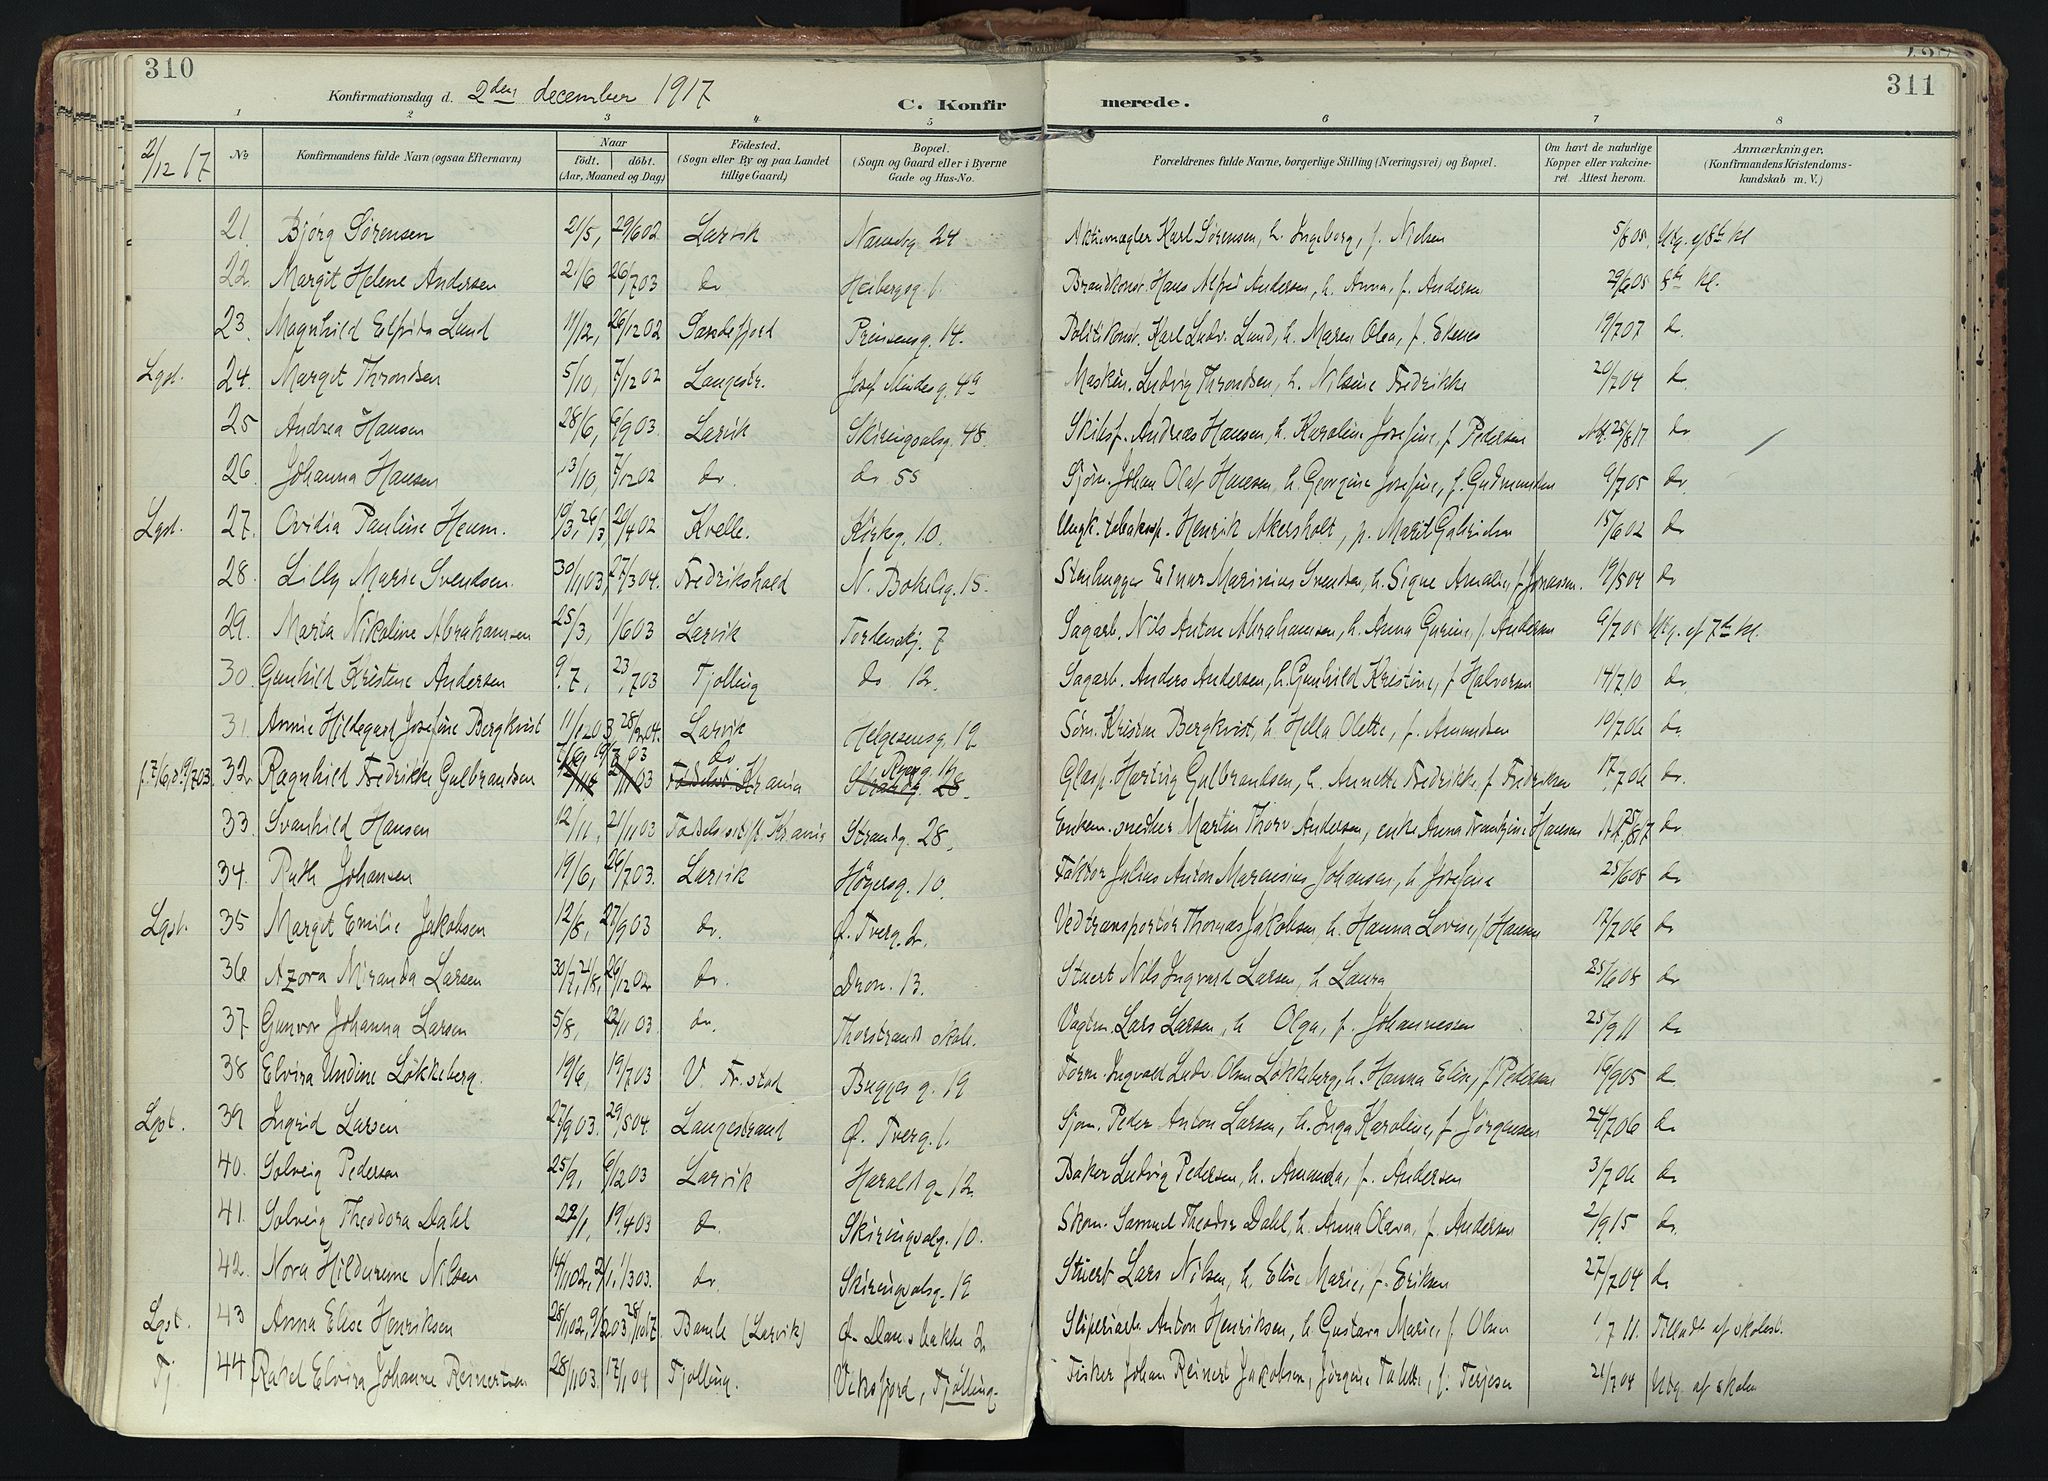 310
Konfirmationsdag d. 2den december 1917
C. Konfirmerede.
311
1 2 3 4 5 6 7 8
2/12 17
No
Konfirmandens fulde Navn (ogsaa Efternavn)
Naar
födt. döbt.
(Aar, Maaned og Dag)
Födested.
(Sogn eller By og paa Landet tillige Gaard)
Bopæl.
(Sogn og Gaard eller i Byerne Gade og Hus-No.
Forældrenes fulde Navne, borgerlige Stilling (Næringsvei) og Bopæl.
Om havt de naturlige Kopper eller vakcineret. Attest herom.
Anmærkninger.
(Konfirmandens Kristendomskundskab m. V.)
21. Björg Sörensen 21/5, 29/6 02 Larvik Nansetg. 24 Aktiemægler Karl Sörensen, h. Ingeborg, f. Nielsen 5/8 05 Utg. af 8de kl
22 Margit Helene Andersen 21/6 26/7 03 do Heibergsg. 1. Brandkonst. Hans Alfred Andersen, h. Anna, f. Andersen 29/6 05 8de kl.
23. Magnhild Elfrida Lund 11/12, 26/12 02 Sandefjord Prinsensg. 14. Politikonst. Karl Ludv. Lund, h. Maren Olea, f. Ekenes 19/7 07 do
Lgst. 24. Margit Throndsen 5/10, 7/12 02 Langestr. Josef Mindesg. 4a Maskin. Ludvig Throndsen, h. Nilsine Fredrikke 20/7 04 do
25 Andrea Hansen 28/6, 6/9 03. Larvik Skiringsalsg. 48. Skibsf. Andreas Hansen, h. Karoline Josefine, f. Pedersen 25/8 17 do
26. Johanna Hansen 3/10, 7/12 02 do. do 55 Sjöm. Johan Olaf Hansen, h. Georgine Josefine, f. Gudmundsen 9/7 05 do
Lgst. 27. Ovidia Pauline Heum. 19/3, 26/3 20/4 02 Kvelle. Kirkeg. 10. Ungk. Henrik Akersholt, p. Marit Gabrielsen 15/6 02 do
28. Lilly Marie Svendsen. 30/11 03, 27/3 04. Fredrikshald N. Bökelig. 15. Stenhugger Einar Marinius Svendsen, h. Signe Amalie, f. Jonassen. 19/5 04 do
29. Marta Nikoline Abrahamsen 25/3, 1/6 03 Larvik Tordenskj. 7 Sagarb. Nils Anton Abrahamsen, h. Anna Gurine, f. Andersen 6/7 05 Utg. af 7de kl.
30. Gunhild Kristine Andersen 9/7, 23/7 03 Tjölling do 12. Sagarb. Anders Andersen, h. Gunhild Kristine, f. Halvorsen 14/7 10 do.
31. Annie Hildegard Josefine Bergkvist 11/12 03, 28/2 04. Larvik Helgesensg. 19 Söm. Kristen Bergkvist, h. Hella Olette, f. Amundsen 19/7 06 do
f. 7/6, d 19/7 03. 32. Ragnhild Fredrikke Gulbrandsen 7/6, 19/7 03 do Kra̶nia 28. Glasp. Hartvig Gulbrandsen, h. Annette Fredrikke, f. Fredriksen 17/7 06 do.
33. Svanhild Hansen 12/11, 21/11 03 Födselsstift. Krania Strandg. 28. Enkem. snedker Martin Thorv. Andersen, enke Anna Frantzine Hansen 25/8 17 do.
34. Ruth Johansen 19/6, 26/7 03. Larvik Högersg. 10. Faktor Julius Anton Marensius Johansen, h. Josefine 25/6 08 do
Lgst. 35 Margit Emilie Jakobsen 12/8, 27/9 03 do. Ö. Tverg. 2. Vedtransportör Thomas Jakobsen, h. Hanna Lovise, f. Hansen 17/7 06 do
36 Azora Miranda Larsen 30/7, 21/8, 26/12 02 do. Dron. 13. Stuert Nils Ingvard Larsen, h Laura 25/6 08 do
37 Gunvor Johanna Larsen 5/8, 22/11 03. do. Thorstrand skole. Vagtm. Lars Larsen, h Olga, f. Johannessen 25/9 11 do
38 Elvira Undine Lökkeberg. 19/6, 19/7 03 V. Fr.stad Bugges g. 19 Form. Ingvald Ludv. Olsen Lökkeberg, h. Hanna Elise, f. Pedersen 16/9 05 do
Lgst. 39 Ingrid Larsen 27/9 03. 29/5 04 Langestrand Ö. Tverg. 1. Sjöm. Peder Anton Larsen, h. Inga Karoline, f. Jörgensen 24/7 06 do
40. Solveig Pedersen 25/9, 6/12 03 Larvik Haralds g. 12. Baker Ludvig Pedersen, h. Amanda, f. Andersen 3/7 06 do
41. Solveig Theodora Dahl 22/1, 19/4 03 do. Skiringsalg. 10. Skom. Samuel Theodor Dahl, h. Anna Olava, f. Andersen 2/9 15 do.
42. Nora Hildurene Nilsen 14/11 02, 1/3 03. do. Skiringsalsg. 19 Stuert Lars Nilsen, h. Elise Marie, f. Eriksen 27/7 04 do
Lgst. 43 Anna Elise Henriksen 28/11 02, 9/2 03 28/10 17 Bamle (Larvik) Ö. Dansbakke 2 Sliperiarb. Anton Henriksen, h Gustava Marie, f. Olsen 1/7 11. Tilladt af skolest.
Tj. 44 Rakel Elvira Johanne Reinertsen 28/11 03. 17/1 04 Tjölling. Viksfjord, Tjölling. Fisker Johan Reinert Jakobsen, Jörgine Talette, f. Terjesen 21/7 04 Utg. af skolen